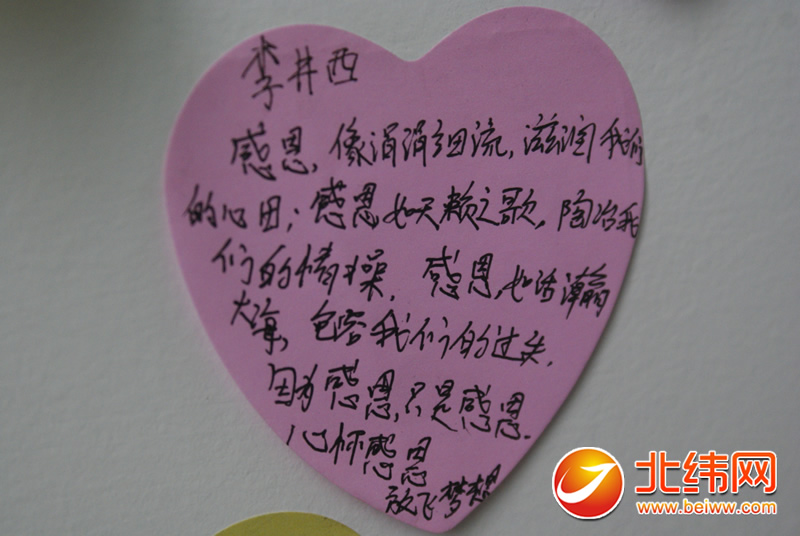 李井西
感恩，像涓涓细流，滋润我们
的心田；感恩如天籁之歌，陶冶我
们的情操，感恩，如浩瀚
大海，包容我们的过失，
因为感恩，只是感恩．
心怀感恩
放飞梦想
北纬网
www.beiww.com